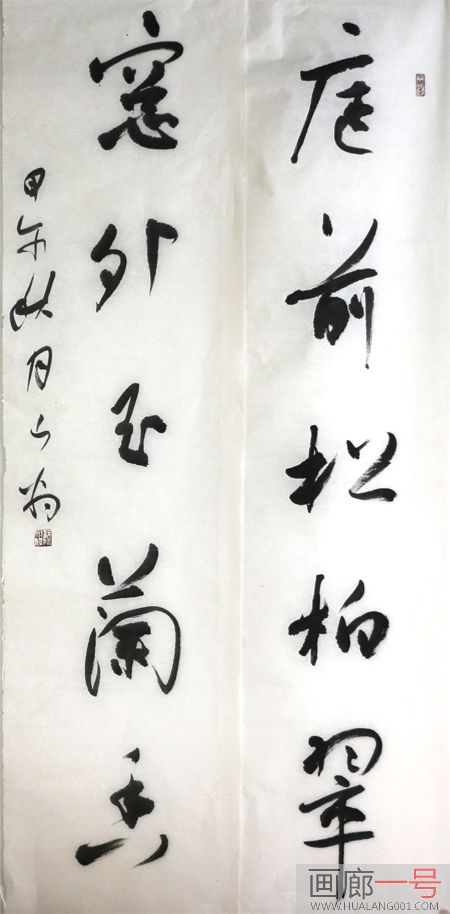 庭前松柏翠
窓外玉蘭香
甲午秋月
画廊一号
WWW.HUALANG001.COM